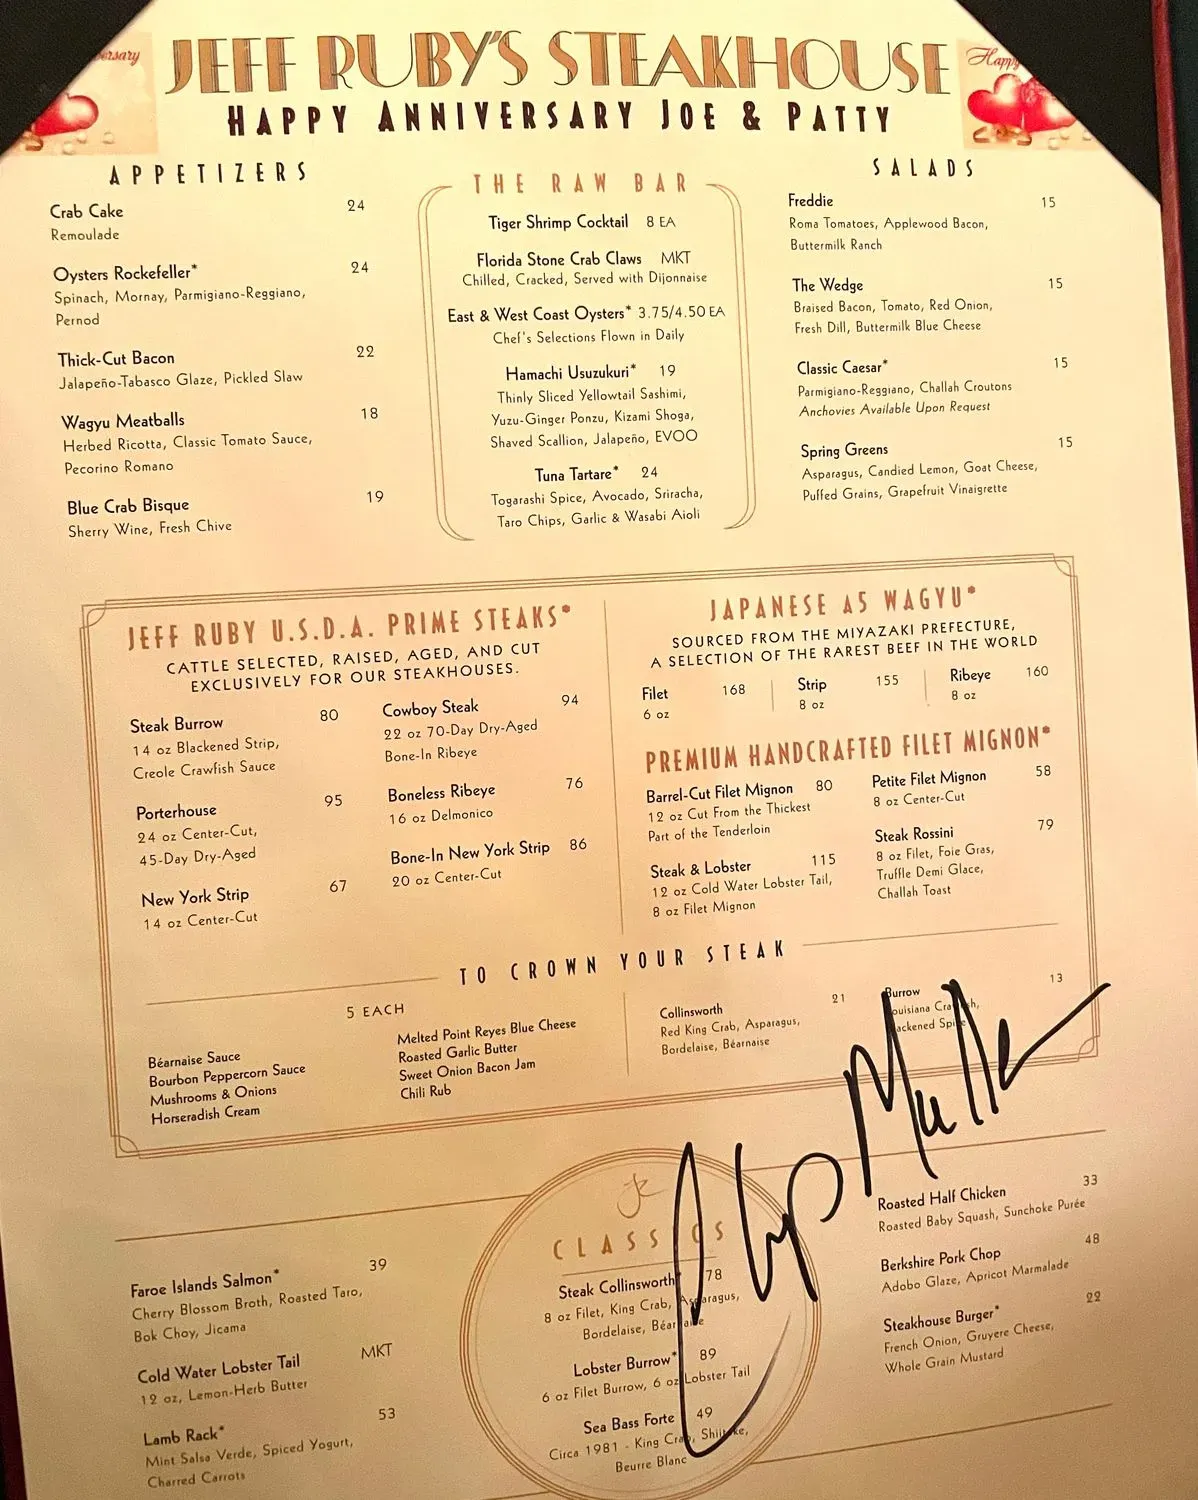 ersary
JEFF RUBY'S STEAKHOUSE
Happy
HAPPY ANNIVERSARY JOE & PATTY
APPETIZERS
Crab Cake 24
Remoulade
Oysters Rockefeller* 24
Spinach, Mornay, Parmigiano-Reggiano,
Pernod
Thick-Cut Bacon 22
Jalapeño-Tabasco Glaze, Pickled Slaw
Wagyu Meatballs 18
Herbed Ricotta, Classic Tomato Sauce,
Pecorino Romano
Blue Crab Bisque 19
Sherry Wine, Fresh Chive
THE RAW BAR
Tiger Shrimp Cocktail 8 EA
Florida Stone Crab Claws MKT
Chilled, Cracked, Served with Dijonnaise
East & West Coast Oysters* 3.75/4.50 EA
Chef's Selections Flown in Daily
Hamachi Usuzukuri* 19
Thinly Sliced Yellowtail Sashimi,
Yuzu-Ginger Ponzu, Kizami Shoga,
Shaved Scallion, Jalapeño, EVOO
Tuna Tartare* 24
Togarashi Spice, Avocado, Sriracha,
Taro Chips, Garlic & Wasabi Aioli
SALADS
Freddie 15
Roma Tomatoes, Applewood Bacon,
Buttermilk Ranch
The Wedge 15
Braised Bacon, Tomato, Red Onion,
Fresh Dill, Buttermilk Blue Cheese
Classic Caesar* 15
Parmigiano-Reggiano, Challah Croutons
Anchovies Available Upon Request
Spring Greens 15
Asparagus, Candied Lemon, Goat Cheese,
Puffed Grains, Grapefruit Vinaigrette
JEFF RUBY U.S.D.A. PRIME STEAKS*
CATTLE SELECTED, RAISED, AGED, AND CUT
EXCLUSIVELY FOR OUR STEAKHOUSES.
Steak Burrow 80
14 oz Blackened Strip,
Creole Crawfish Sauce
Porterhouse 95
24 oz Center-Cut,
45-Day Dry-Aged
New York Strip 67
14 oz Center-Cut
Cowboy Steak 94
22 oz 70-Day Dry-Aged
Bone-In Ribeye
Boneless Ribeye 76
16 oz Delmonico
Bone-In New York Strip 86
20 oz Center-Cut
JAPANESE A5 WAGYU*
SOURCED FROM THE MIYAZAKI PREFECTURE,
A SELECTION OF THE RAREST BEEF IN THE WORLD
Filet 168
6 oz
Strip 155
8 oz
Ribeye 160
8 oz
PREMIUM HANDCRAFTED FILET MIGNON*
Barrel-Cut Filet Mignon 80
12 oz Cut From the Thickest
Part of the Tenderloin
Steak & Lobster 115
12 oz Cold Water Lobster Tail,
8 oz Filet Mignon
Petite Filet Mignon 58
8 oz Center-Cut
Steak Rossini 79
8 oz Filet, Foie Gras,
Truffle Demi Glace,
Challah Toast
TO CROWN YOUR STEAK
5 EACH
Béarnaise Sauce
Bourbon Peppercorn Sauce
Mushrooms & Onions
Horseradish Cream
Melted Point Reyes Blue Cheese
Roasted Garlic Butter
Sweet Onion Bacon Jam
Chili Rub
Collinsworth 21
Red King Crab, Asparagus,
Bordelaise, Béarnaise
Burrow 13
Faroe Islands Salmon* 39
Cherry Blossom Broth, Roasted Taro,
Bok Choy, Jicama
Cold Water Lobster Tail MKT
12 oz, Lemon-Herb Butter
Lamb Rack* 53
Mint Salsa Verde, Spiced Yogurt,
Charred Carrots
CLASSICS
Steak Collinsworth* 78
8 oz Filet, King Crab, Asparagus,
Bordelaise, Béarnaise
Lobster Burrow* 89
6 oz Filet Burrow, 6 oz Lobster Tail
Sea Bass Forte 49
Circa 1981 - King Crab, Shiitake,
Beurre Blanc
Roasted Half Chicken 33
Roasted Baby Squash, Sunchoke Purée
Berkshire Pork Chop 48
Adobo Glaze, Apricot Marmalade
Steakhouse Burger* 22
French Onion, Gruyere Cheese,
Whole Grain Mustard